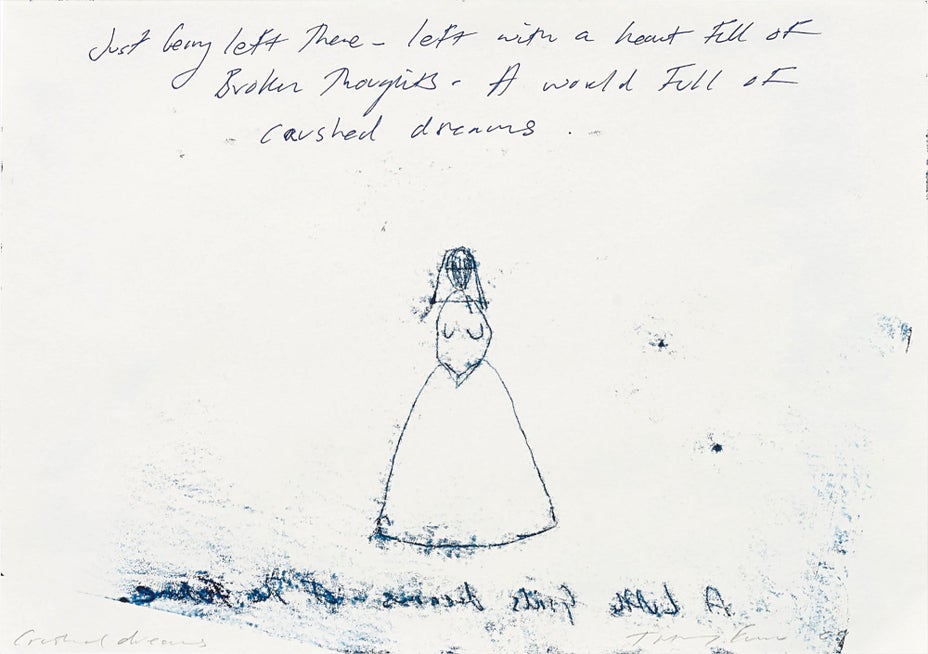 Just being left There - left with a heart Full OF
Broken Thoughts - A would Full OF
crushed dreams .
A Little Girls dreams of The Future
Crushed dreams
Tracey Emin